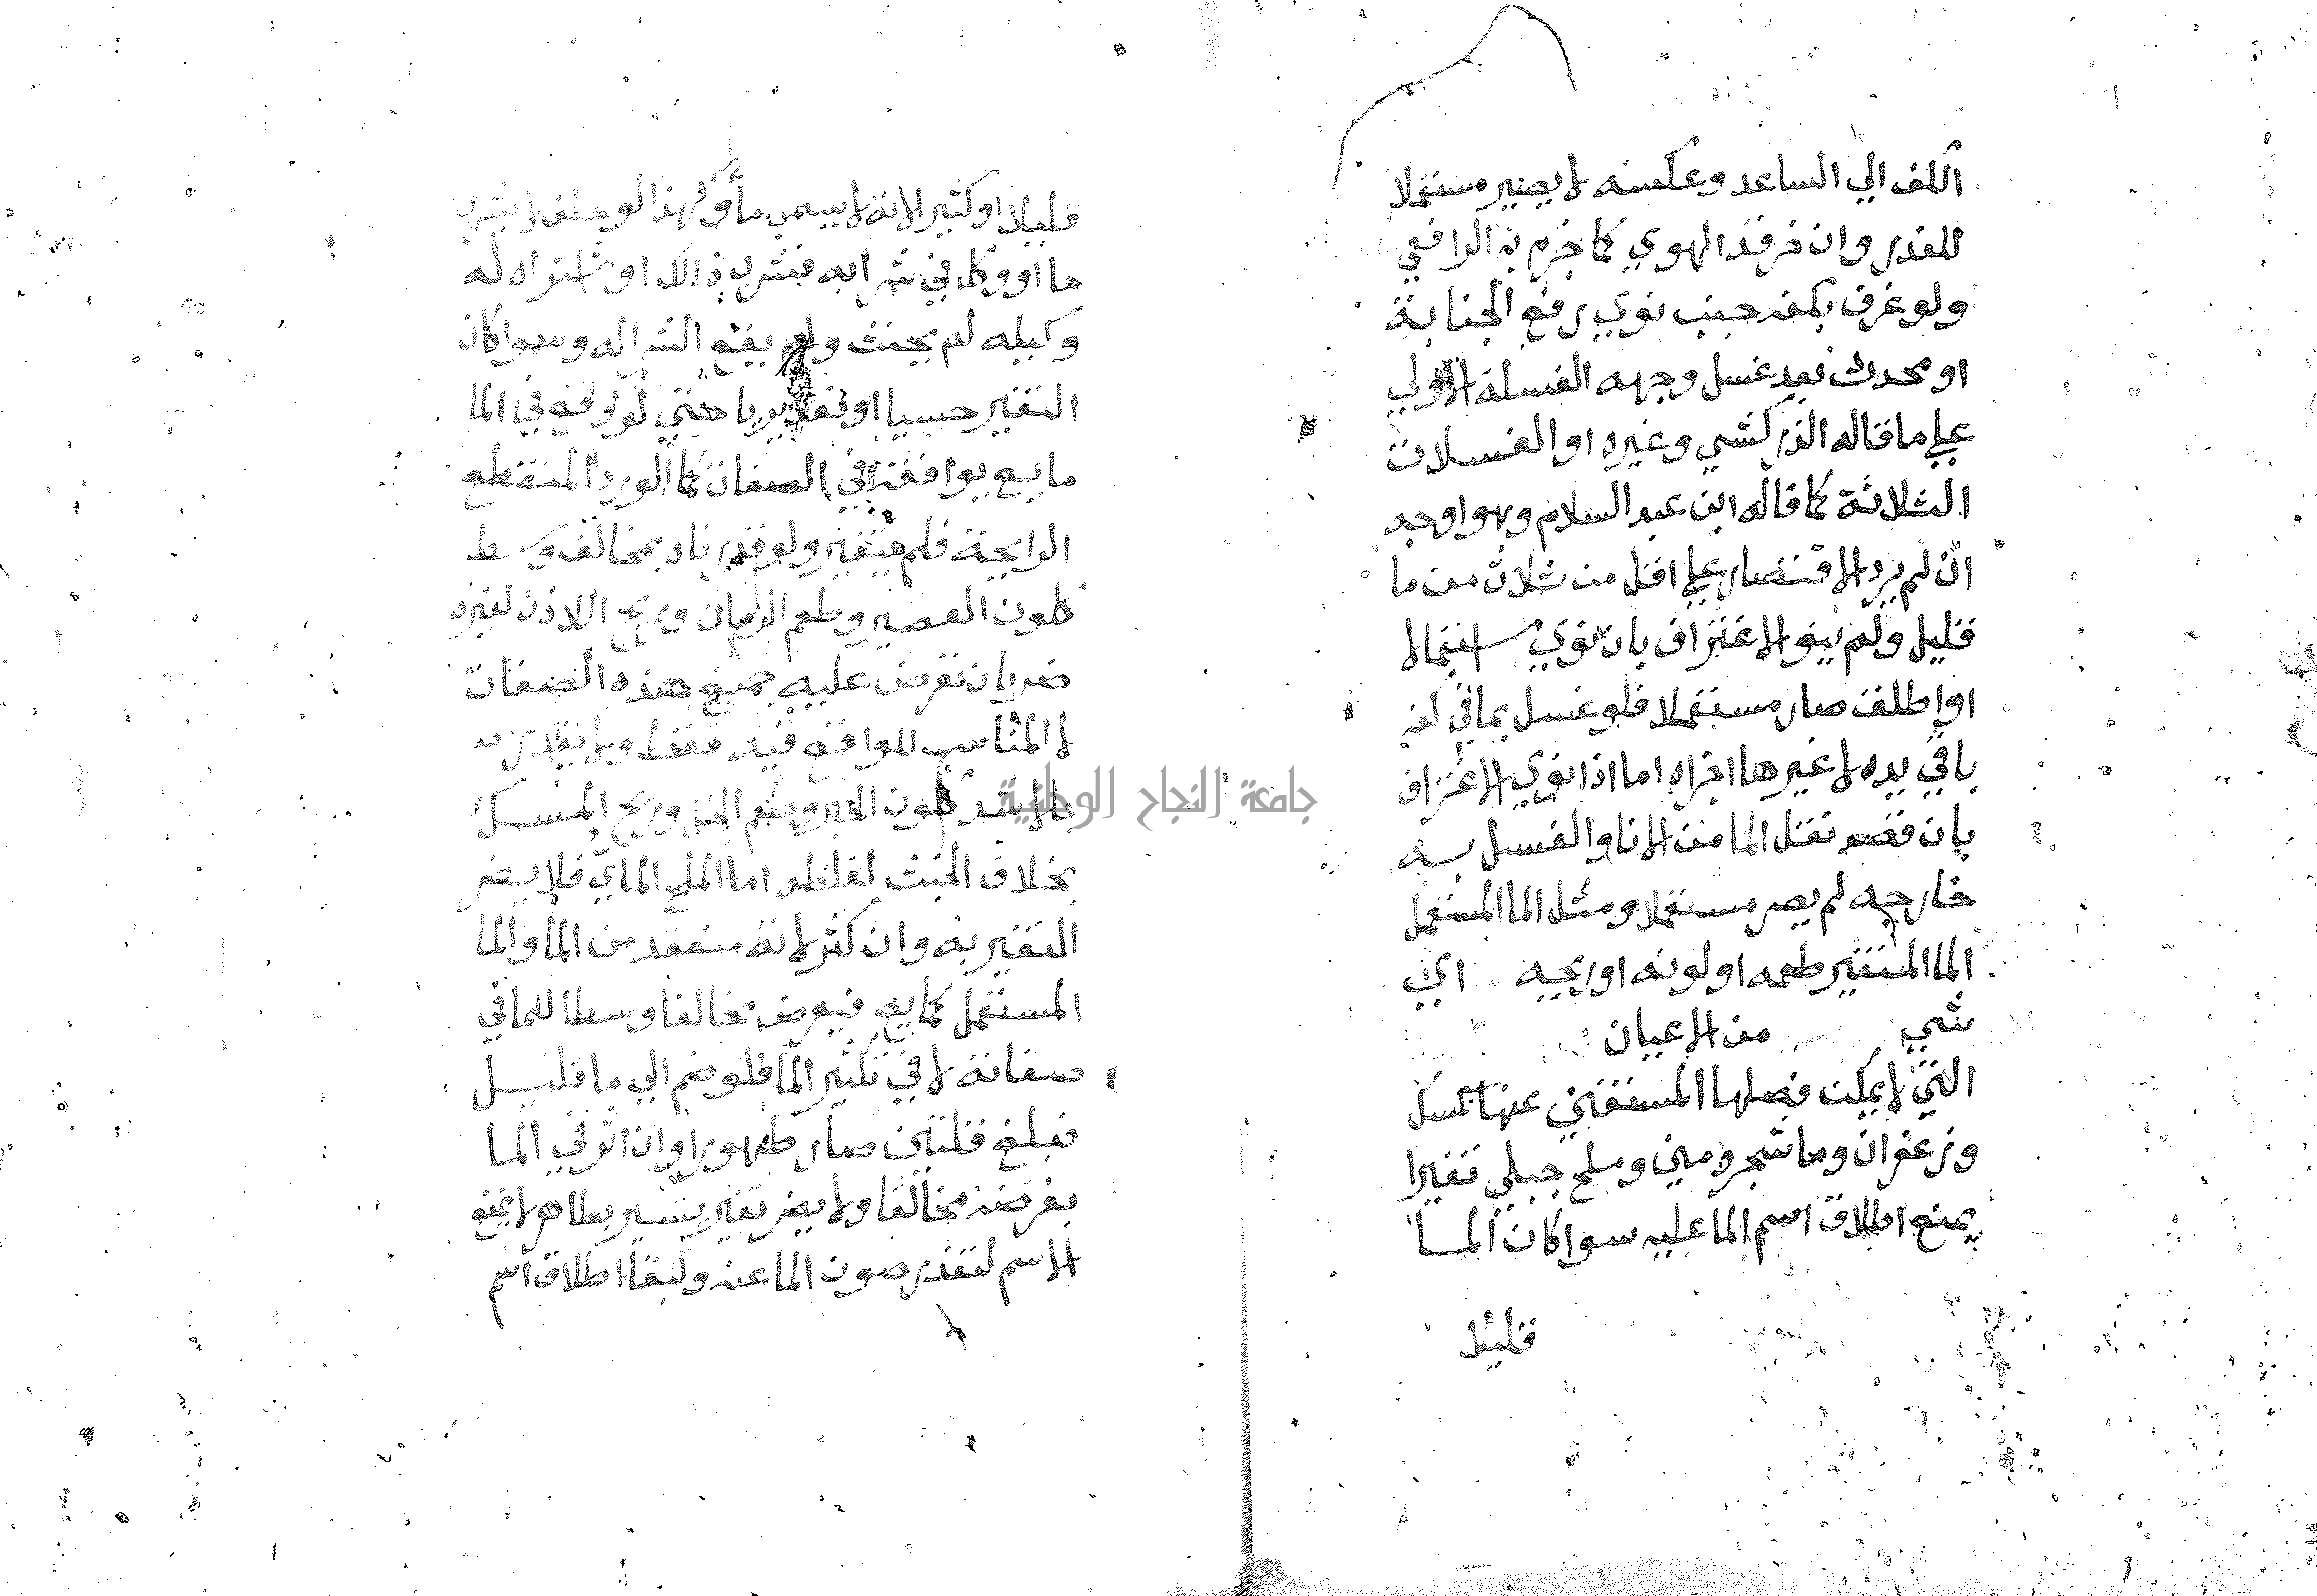 الكف الي الساعد وعكسه لا يصير مستعملا
للعذر وان خرقه الهوي كما جزم به الرافعي
ولو غرف بكفه جنب نوي رفع الجنابة
او محدث بعد غسل وجهه الغسلة الاولي
علي ما قاله الزركشي وغيره او الغسلات
الثلاثة كما قاله ابن عبد السلام وهو اوجه
ان لم يرد الاقتصار علي اقل من ثلاث من ما
قليل ولم ينو الاغتراف بان نوي استعمالا
او اطلق صار مستعملا فلو غسل بما في كفه
باقي يده لا غيرها اجزاه اما اذا نوي الاغتراف
بان قصد نقل الما من الانا والغسل به
خارجه لم يصر مستعملا ومثل الما المستعمل
الما المتغير طعمه او لونه او ريحه اي
شي من الاعيان
التي لا يمكن فصلها المستغني عنها كمسك
وزعفران وما شجر ومني وملح جبلي تغيرا
يمنع اطلاق اسم الما عليه سوا كان الما
قليلا
قليلا او كثيرا لانه لا يسمي ما ولهذا لو حلف لا يشرب
ما او وكل في شرايه فشرب ذالك او اشتراه له
وكيله لم يحنث ولم يقع الشرا له وسوا كان
التغير حسيا او تقديريا حتي لو وقع في الما
مايع يوافقه في الصفات كما الورد المنقطع
الرايحة فلم يتغير ولو قدرناه بمخالف وسط
كلون العصير وطعم الرمان وريح اللاذن لغيره
ضر بان تعرض عليه جميع هذه الصفات
لا المناسب للواقع فيه فقط ولا يقدر به
بالاشد كلون الحبر وطعم الخل وريح المسك
بخلاف الخبث لغلظه اما الملح المايّ فلا يضر
التغير به وان كثر لانه منعقد من الما والما
المستعمل كمايع فيعرض مخالفا وسطا للما في
صفاته لا في تكثير الما فلو ضم الي ما قليل
فبلغ قلتين صار طهورا وان اثر في الما
بفرضه مخالفا ولا يضر تغير يسير بطاهر لا يمنع
الاسم لتعذر صون الما عنه ولبقا اطلاق اسم
جامعة النجاح الوطنية